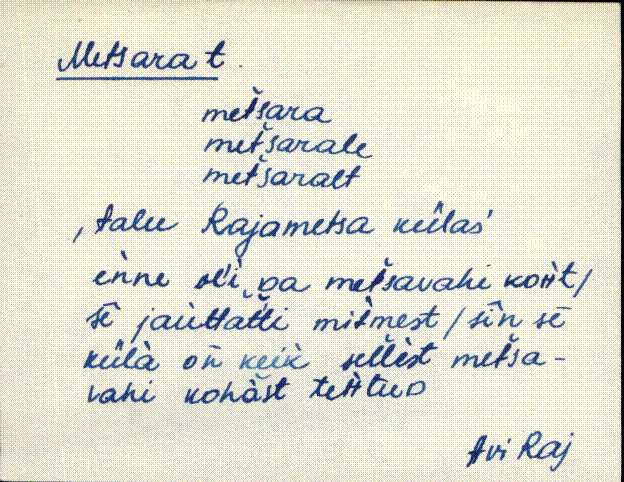 Metsara t.
metšara
metšarale
metšaralt
‚talu Rajametsa külas'
ènne ol'i, oa metšavahi koħt /
sē̬ jaùttatti mìtmest / sīn sē
külà oñ keik sellèst metša-
vahi kohàst tettuD
Avi Raj